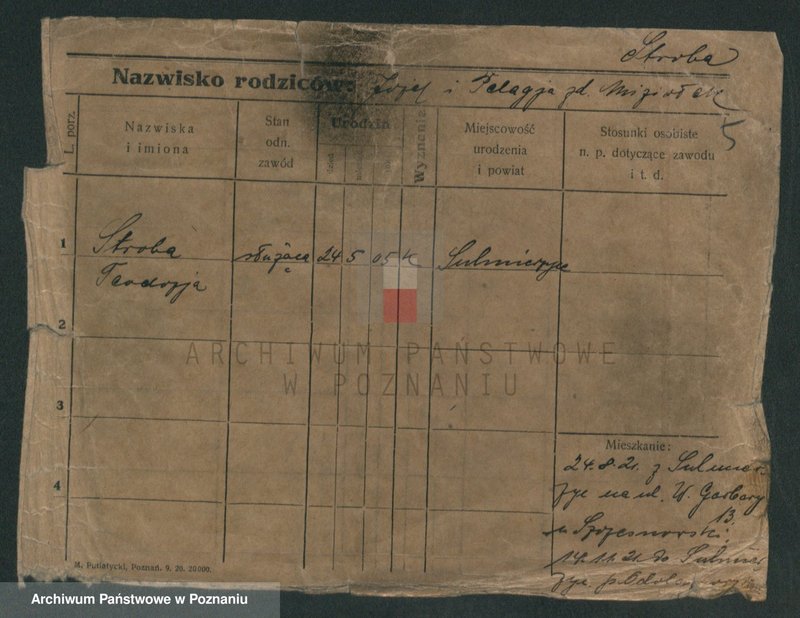 Stroba
Nazwisko rodziców: Józef i Pelagja zd.
L. porz.
Nazwiska
i imiona
Stan
odn.
zawód
Urodzin
dzień
Wyznanie
Miejscowość
urodzenia
i powiat
Stosunki osobiste
n. p. dotyczące zawodu
i t. d.
1
Stroba
Teodozja
służąca
24 5 05 k
Sulmierzyce
2
ARCHIWUM PAŃSTWOWE
W POZNANIU
3
4
Mieszkanie:
24.8.21. z Sulmier-
zyc na ul. W. Garbary
13.
u
14.11.21. do Sulmier
zyc
M. Putiatycki, Poznań. 9. 20. 20000.
Archiwum Państwowe w Poznaniu